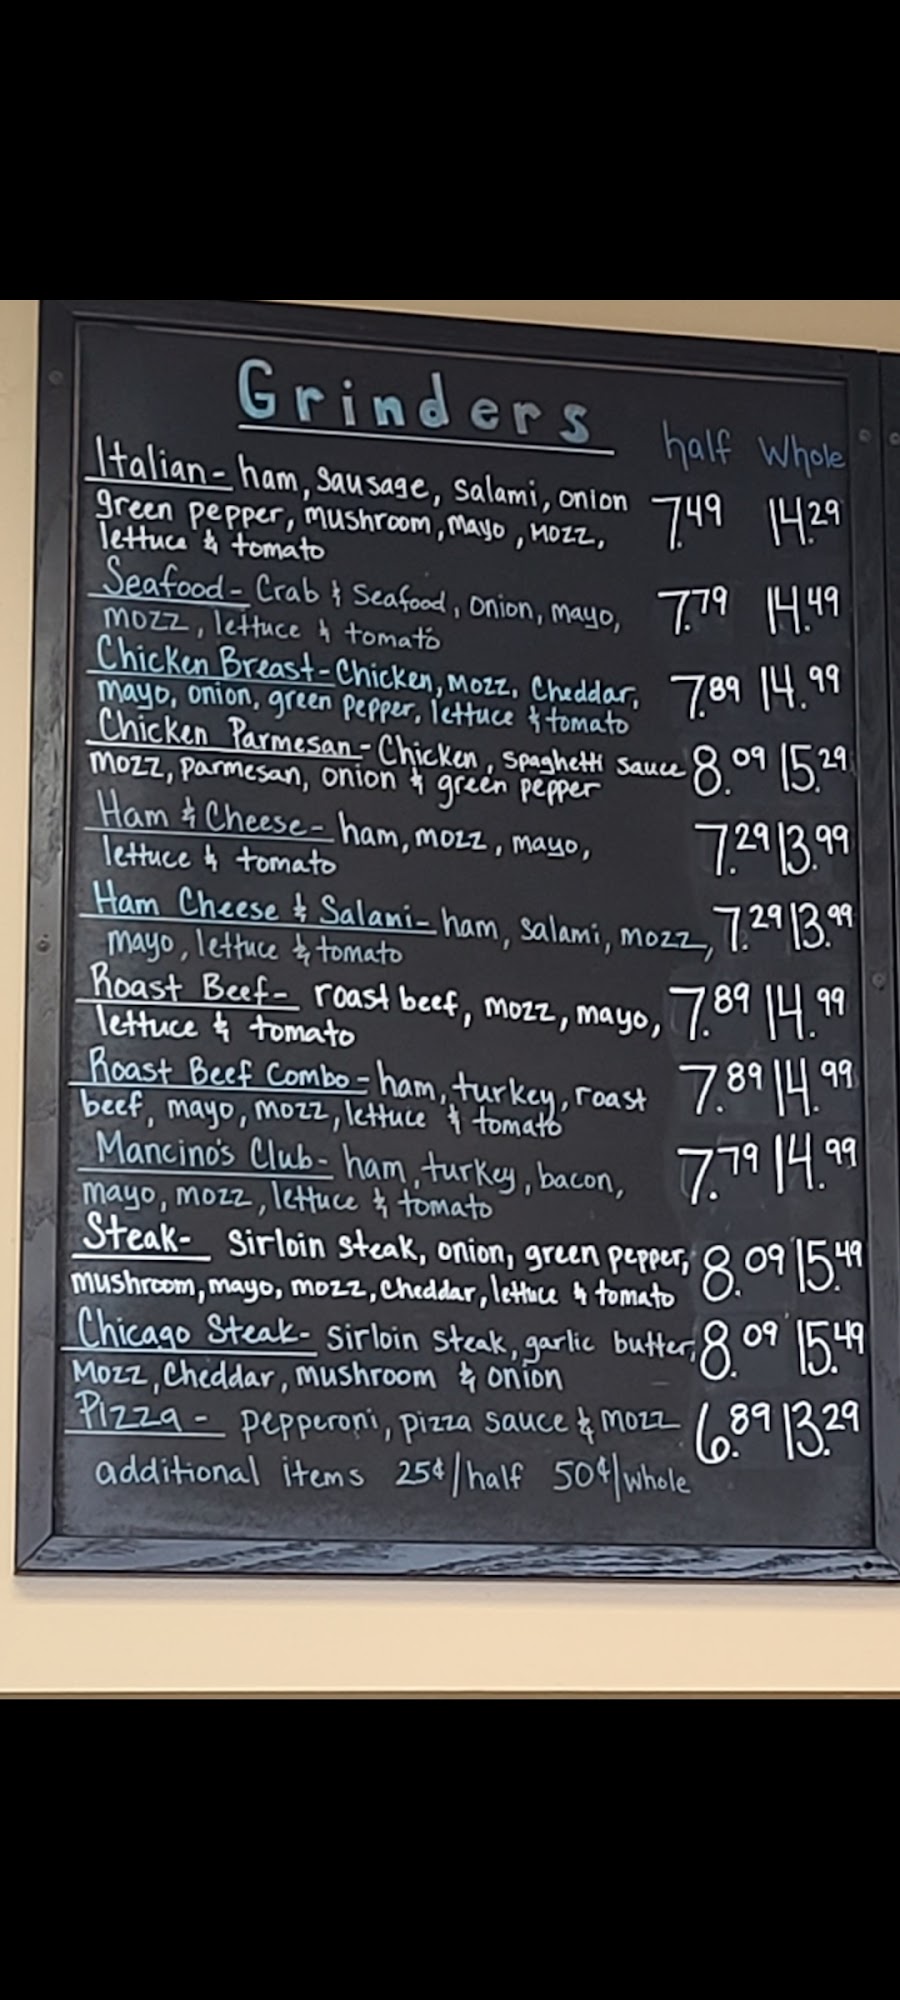 Grinders
half Whole
Italian- ham, Sausage, Salami, onion 7.49 14.29
green pepper, mushroom, mayo, mozz,
lettuce & tomato
Seafood- Crab & Seafood, Onion, mayo, 7.79 14.49
mozz, lettuce & tomato
Chicken Breast- Chicken, mozz, Cheddar, 7.89 14.99
mayo, onion, green pepper, lettuce & tomato
Chicken Parmesan- Chicken, Spaghetti Sauce 8.09 15.29
mozz, Parmesan, onion & green pepper
Ham & Cheese- ham, mozz, mayo, 7.29 13.99
lettuce & tomato
Ham Cheese & Salami- ham, Salami, mozz, 7.29 13.99
mayo, lettuce & tomato
Roast Beef- roast beef, mozz, mayo, 7.89 14.99
lettuce & tomato
Roast Beef Combo- ham, turkey, roast 7.89 14.99
beef, mayo, mozz, lettuce & tomato
Mancino's Club- ham, turkey, bacon, 7.79 14.99
mayo, mozz, lettuce & tomato
Steak- Sirloin Steak, onion, green pepper, 8.09 15.49
mushroom, mayo, mozz, Cheddar, lettuce & tomato
Chicago Steak- Sirloin Steak, garlic butter, 8.09 15.49
Mozz, Cheddar, mushroom & onion
Pizza- pepperoni, pizza sauce & mozz 6.89 13.29
additional items 25¢/half 50¢/whole